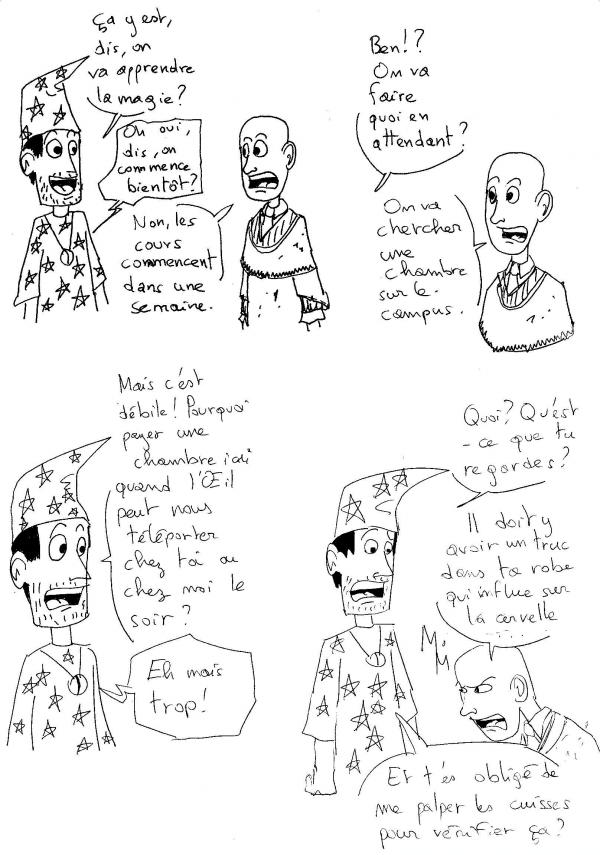 Ça y est,
dis, on
va apprendre
la magie?
Oh oui,
dis, on
commence
bientôt?
Non, les
cours
commencent
dans une
semaine.
Ben!?
On va
faire
quoi en
attendant?
On va
chercher
une
chambre
sur le
campus.
Mais c'est
débile! Pourquoi
payer une
chambre ici
quand l'Œil
peut nous
téléporter
chez toi ou
chez moi le
soir?
Eh mais
trop!
Quoi? Qu'est
-ce que tu
regardes?
Il doit y
avoir un truc
dans ta robe
qui influe sur
la cervelle
.....
M, M
Et t'es obligé de
me palper les cuisses
pour vérifier ça?